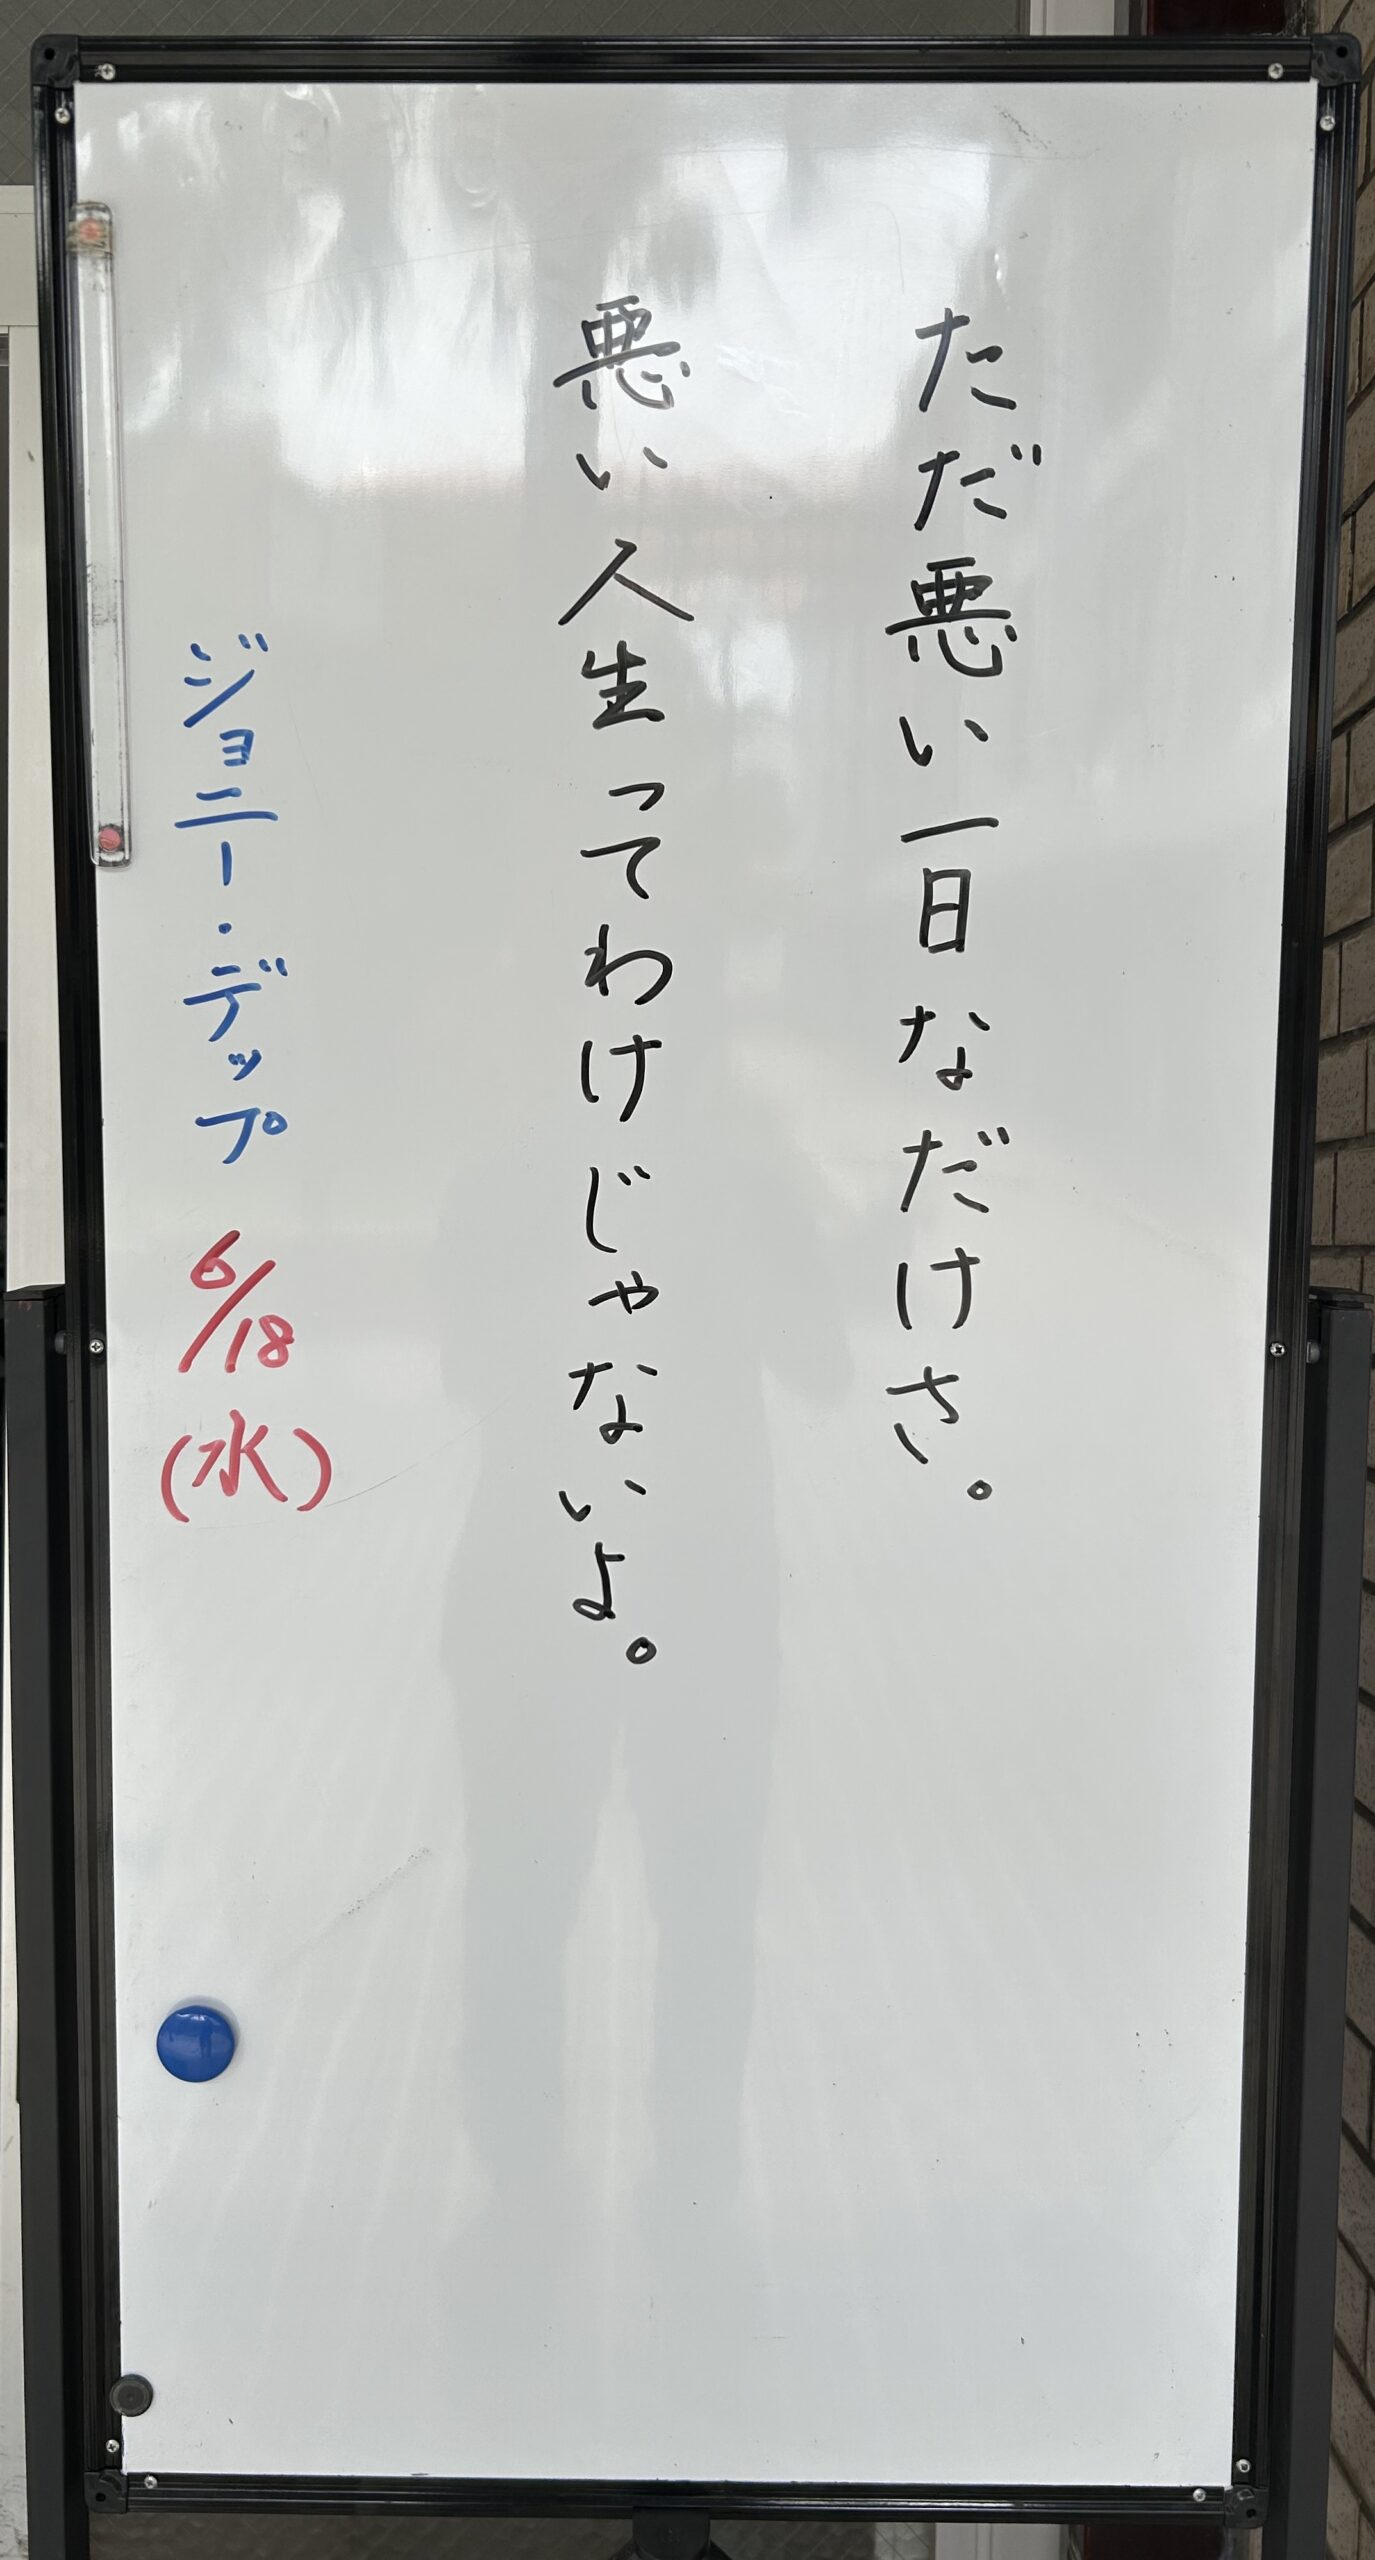 ただ悪い一日なだけさ。
悪い人生ってわけじゃないよ。
ジョニー・デップ 6/18(水)